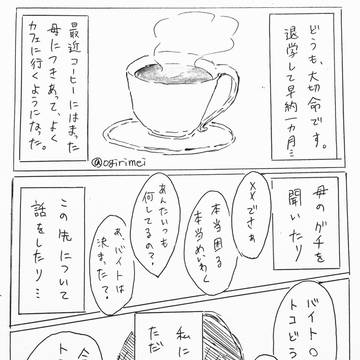 どうも、大切命です。
退学して早約一カ月…
最近コーヒーにはまった
母につきあって、よく
カフェに行くようになった。
@ogirimei
母のグチを
聞いたり
××でさぁ
本当困る
本当めいわく
あんたいつも
何してるの?
あ、バイトは
決まった?
この先について
話をしたり…
バイト
トコどう
私に
ただ